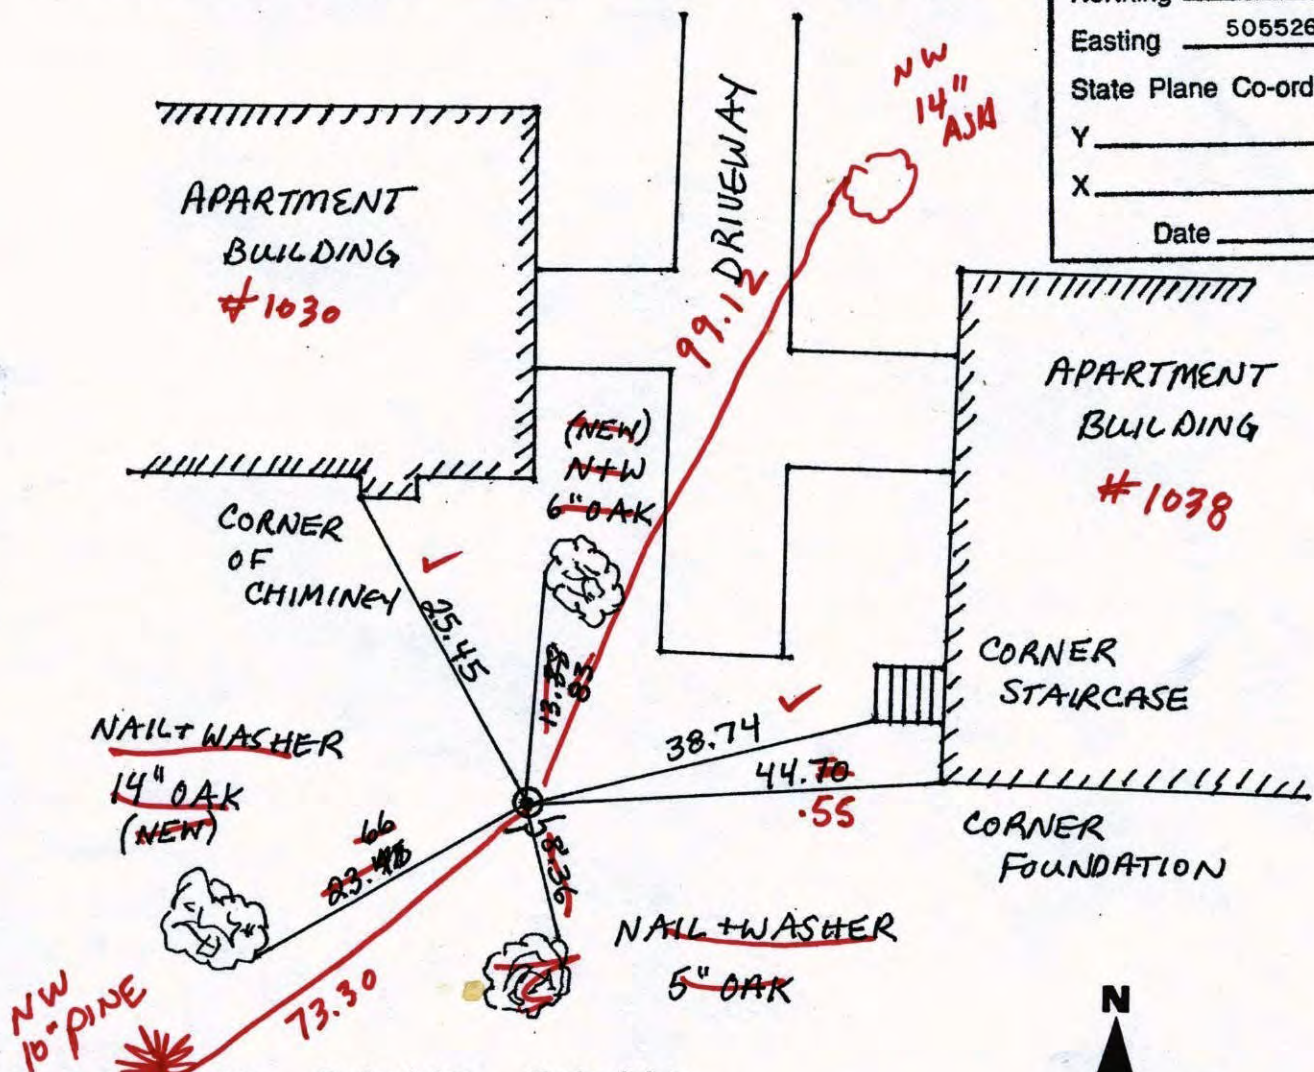 Easting 505526
State Plane Co-ord
Y
X
Date
NW
14"
ASH
DRIVEWAY
APARTMENT
BUILDING
#1030
99.12
APARTMENT
BUILDING
#1038
(NEW)
N+W
6" OAK
CORNER
OF
CHIMINEY
25.45
13.88
83
CORNER
STAIRCASE
38.74
44.70
.55
NAIL+ WASHER
14" OAK
(NEW)
66
23.48
58.36
CORNER
FOUNDATION
NAIL +WASHER
5" OAK
NW
10" PINE
73.30
N